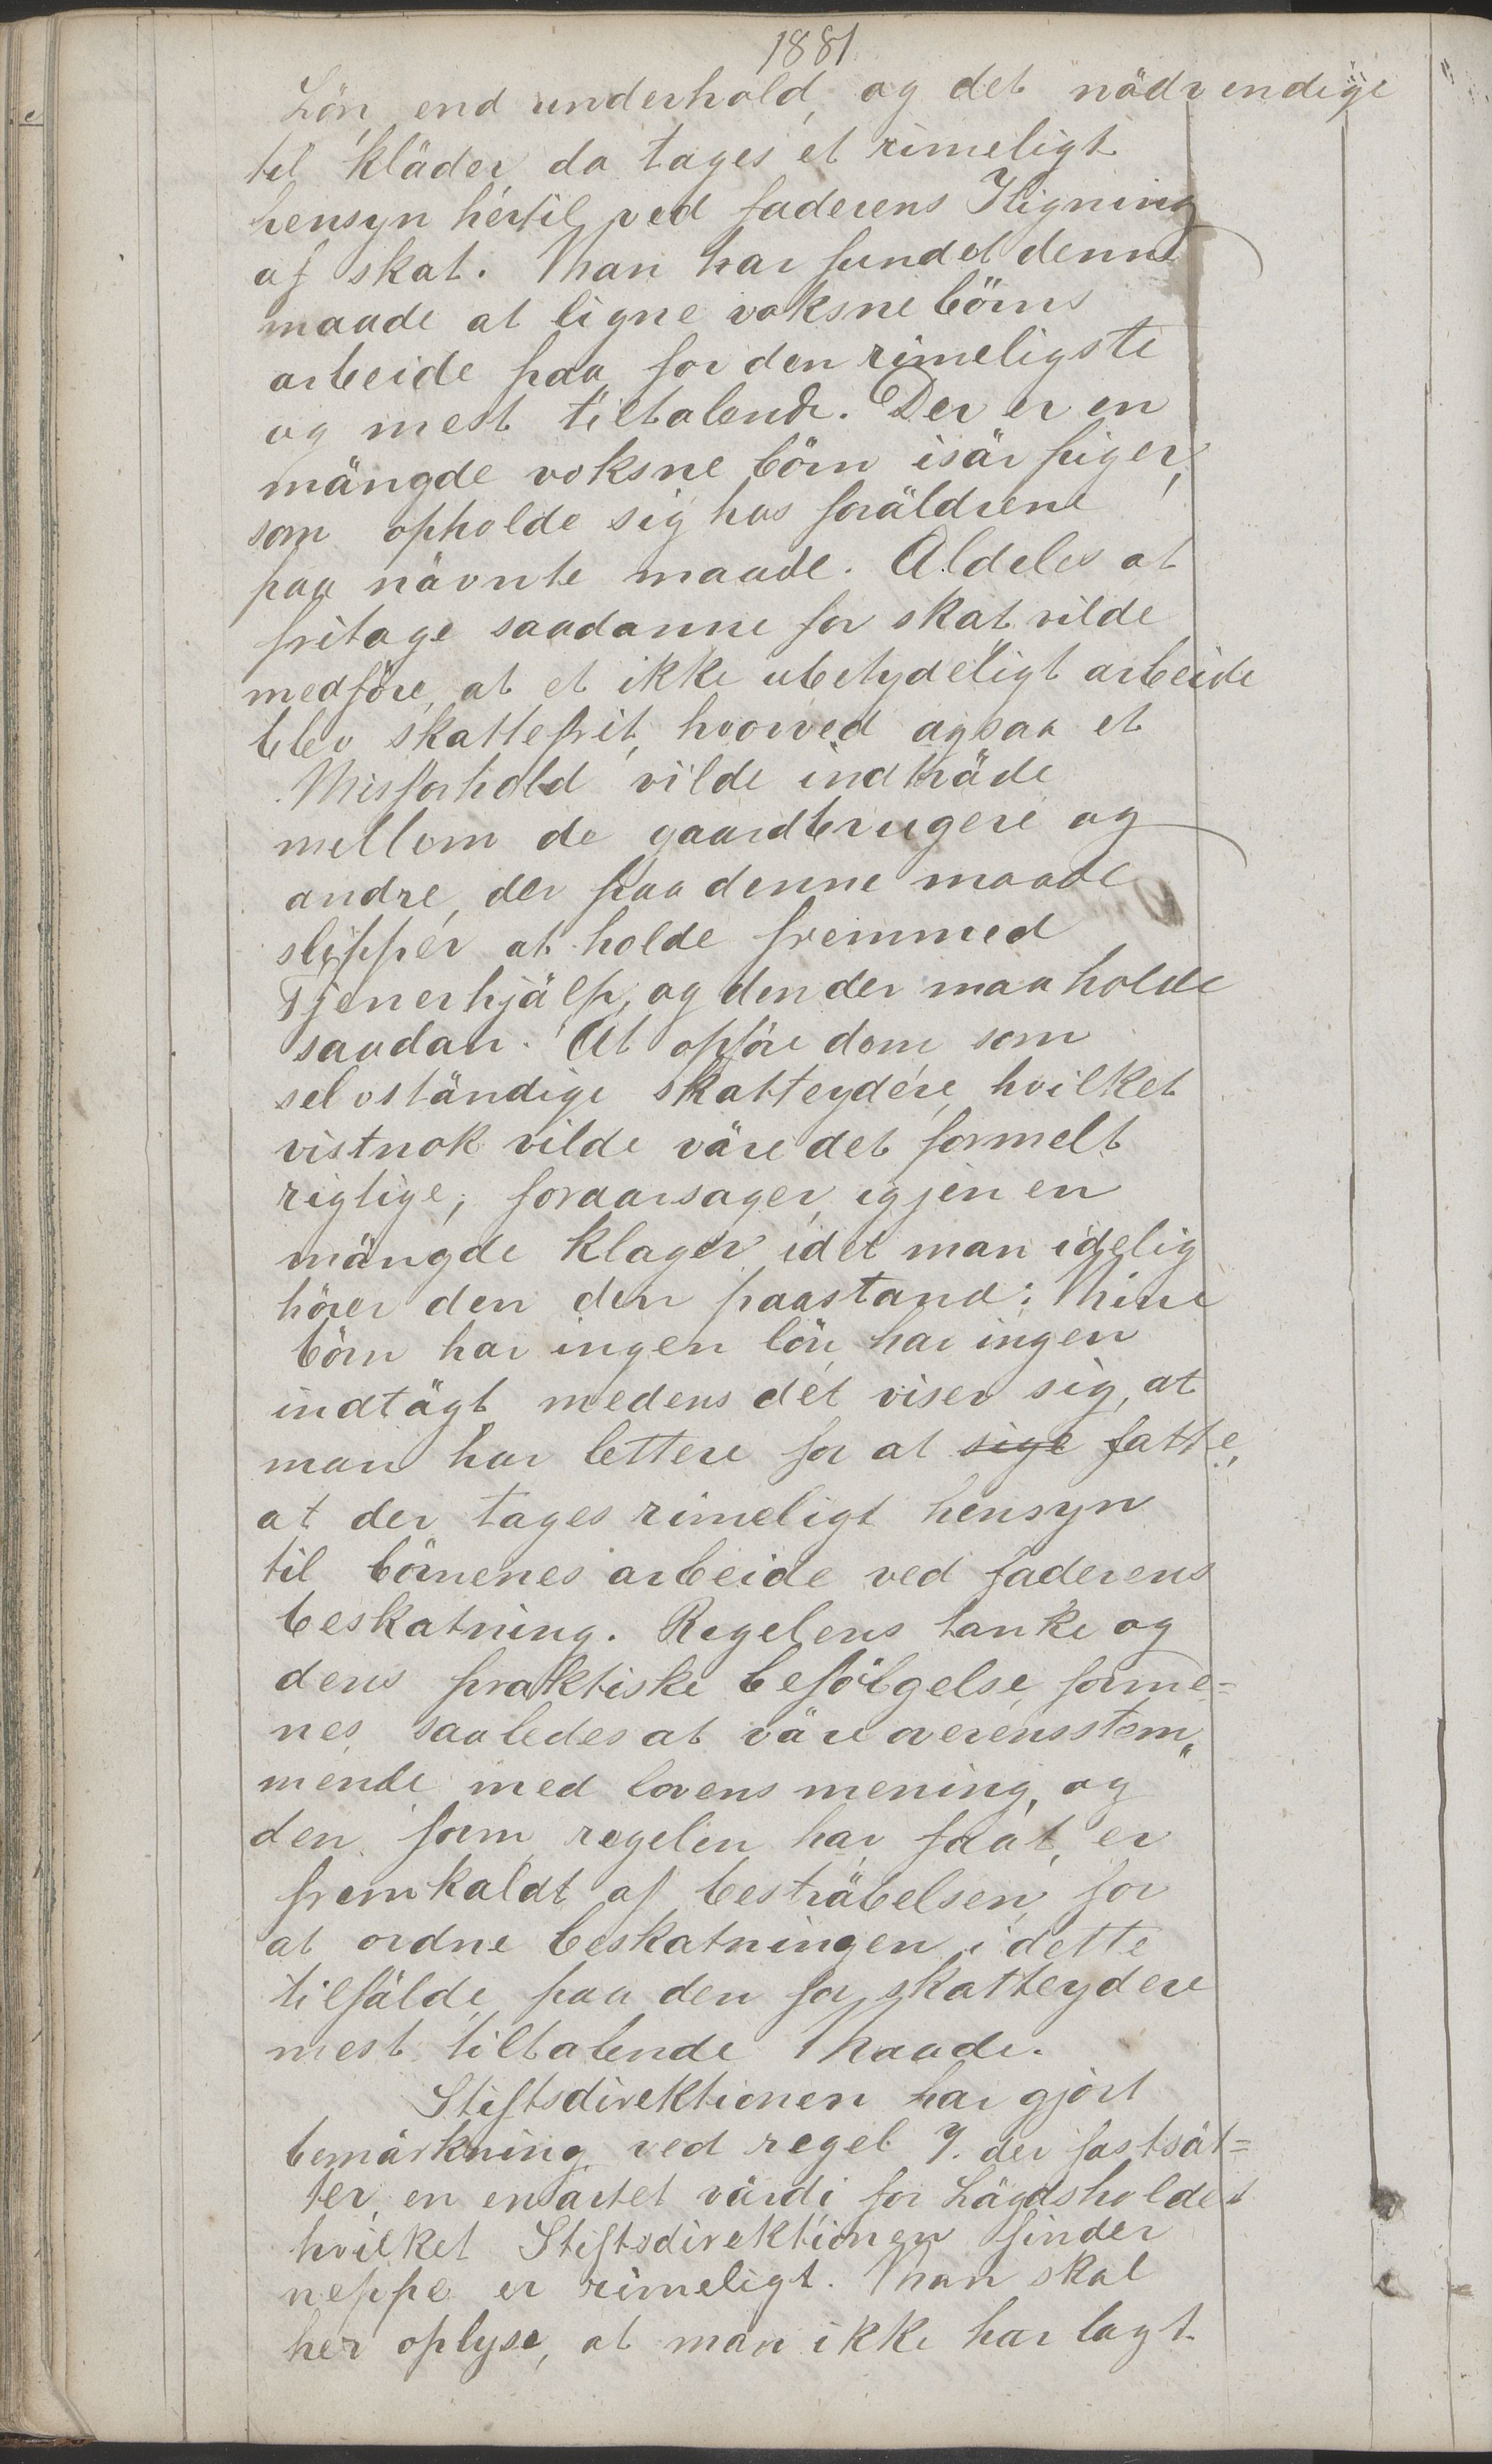 1881
Lön, end underhold, og det nödvendige
til kläder da tages et rimeligt
hensyn hertil ved faderens Iligning
af skat. Man har fundet denne
maade at ligne voksne börns
arbeide paa for den rimeligste
og mest tiltalende. Der er en
mängde voksne börn isär piger,
som opholde sig hos foräldrene
paa nävnte maade. Aldeles at
fritage saadanne for skat vilde
medföre, at et ikke ubetydeligt arbeide
blev skattefrit, hvorved ogsaa et
Misforhold vilde indträde
mellem de gaardbrugere og
andre, der paa denne maade
slipper at holde fremmed
Tjenerhjälp, og den der maa holde
saadan. At opföre dem som
selvständige skatteydere, hvilket
vistnok vilde väre det formelt
rigtige, foraarsager igjen en
mängde klager idet man idelig
hörer den den paastand: Mine
börn har ingen lön, har ingen
indtägt, medens det viser sig, at
man har lettere for at sige fatte,
at der tages rimeligt hensyn
til börnenes arbeide ved faderens
beskatning. Regelens tanke og
dens praktiske befölgelse forme=
nes saaledes at väre overensstem„
mende med lovens mening, og
den form regelen har faat, er
fremkaldt af besträbelsen for
at ordne beskatningen i dette
tilfälde paa den for skatteydere
mest tiltalende Maade.
Stiftsdirektionen har gjort
bemärkning ved regel 7. der fastsät=
ter en ensartet värdi for Lägdsholdet
hvilket Stiftsdirektionen finder
neppe er rimeligt. Man skal
her oplyse, at man ikke har lagt